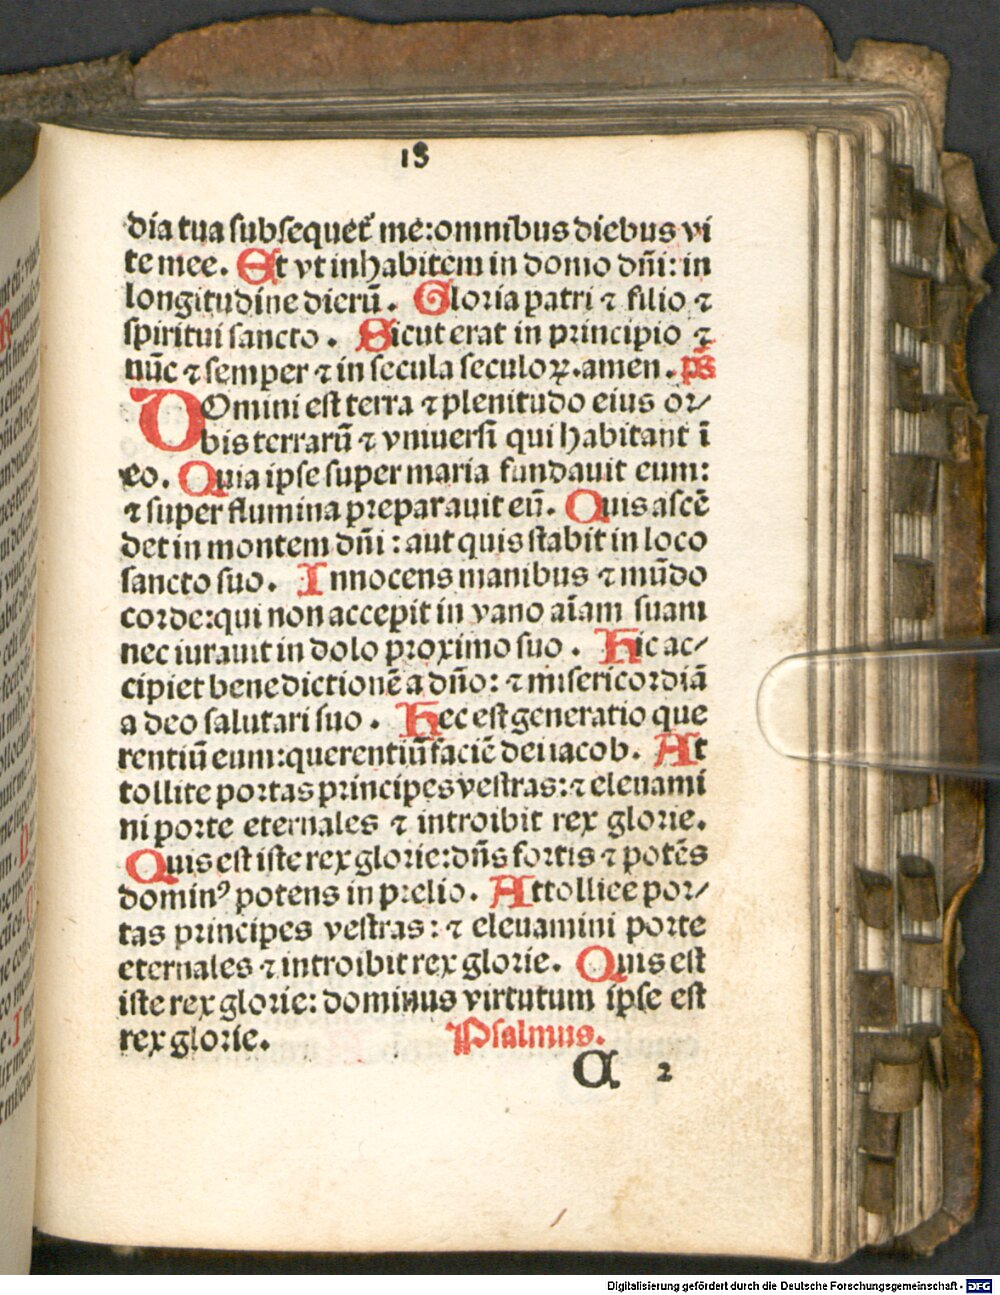 18
dia tua subsequet᷑ me: omnibus diebus vi
te mee. Et vt inhabitem in domo dn̄i: in
longitudine dierū. Gloria patri ⁊ filio ⁊
spiritui sancto. Sicut erat in principio ⁊
nūc ⁊ semper ⁊ in secula seculoꝝ. amen. p̄s
DOmini est terra ⁊ plenitudo eius or/
bis terrarū ⁊ vniuersi qui habitant ī
eo. Quia ipse super maria fundauit eum:
⁊ super flumina preparauit eū. Quis ascē
det in montem dn̄i: aut quis stabit in loco
sancto suo. Innocens manibus ⁊ mūdo
corde: qui non accepit in vano aīam suam
nec iurauit in dolo proximo suo. Hic ac/
cipiet benedictionē a dn̄o: ⁊ misericordiā
a deo salutari suo. Hec est generatio que
rentiū eum: querentiū faciē dei iacob. At
tollite portas principes vestras: ⁊ eleuami
ni porte eternales ⁊ introibit rex glorie.
Quis est iste rex glorie: dn̄s fortis ⁊ potēs
dominꝰ potens in prelio. Attollite por/
tas principes vestras: ⁊ eleuamini porte
eternales ⁊ introibit rex glorie. Quis est
iste rex glorie: dominus virtutum ipse est
rex glorie. Psalmus.
A 2
Digitalisierung gefördert durch die Deutsche Forschungsgemeinschaft - DFG